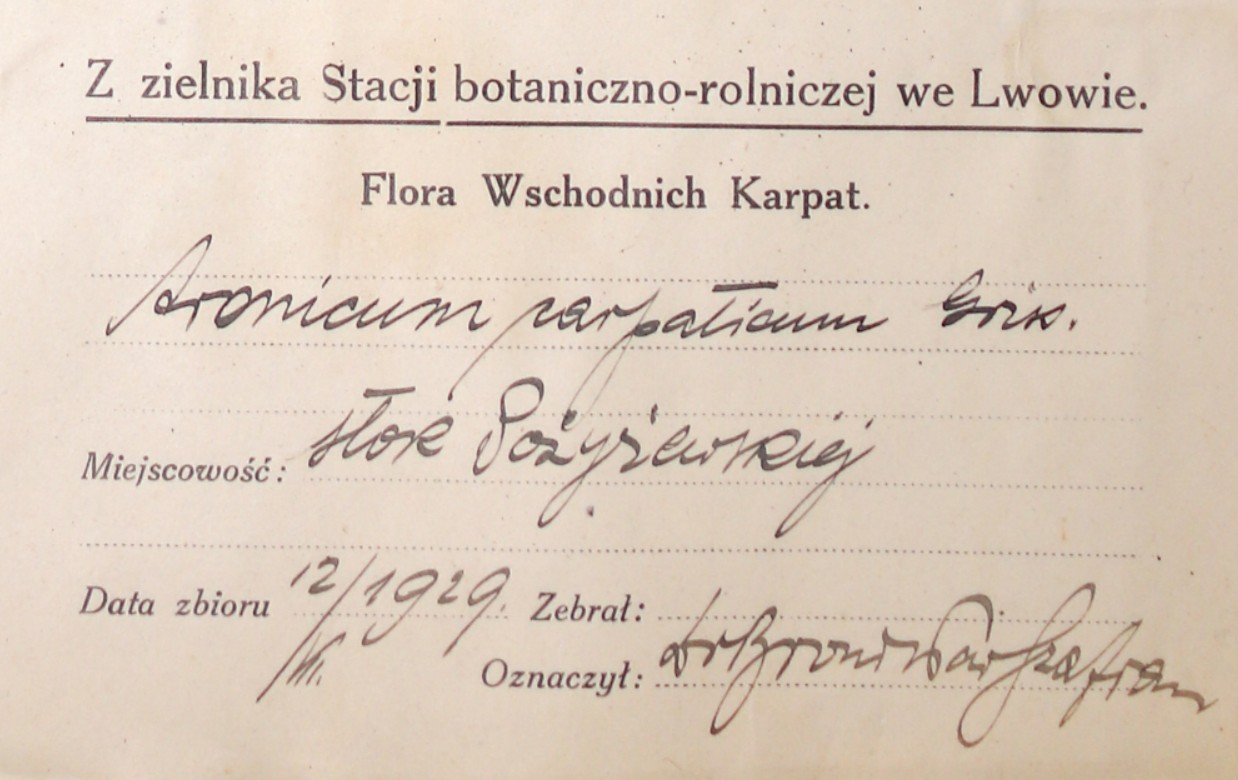 Z zielnika Stacji botaniczno-rolniczej we Lwowie.
Flora Wschodnich Karpat.
Aronicum carpaticum Gris.
Miejscowość: stok Pożyżewskiej
Data zbioru 12/VII. 1929. Zebrał:
Oznaczył: Dr Bronisław Szafran